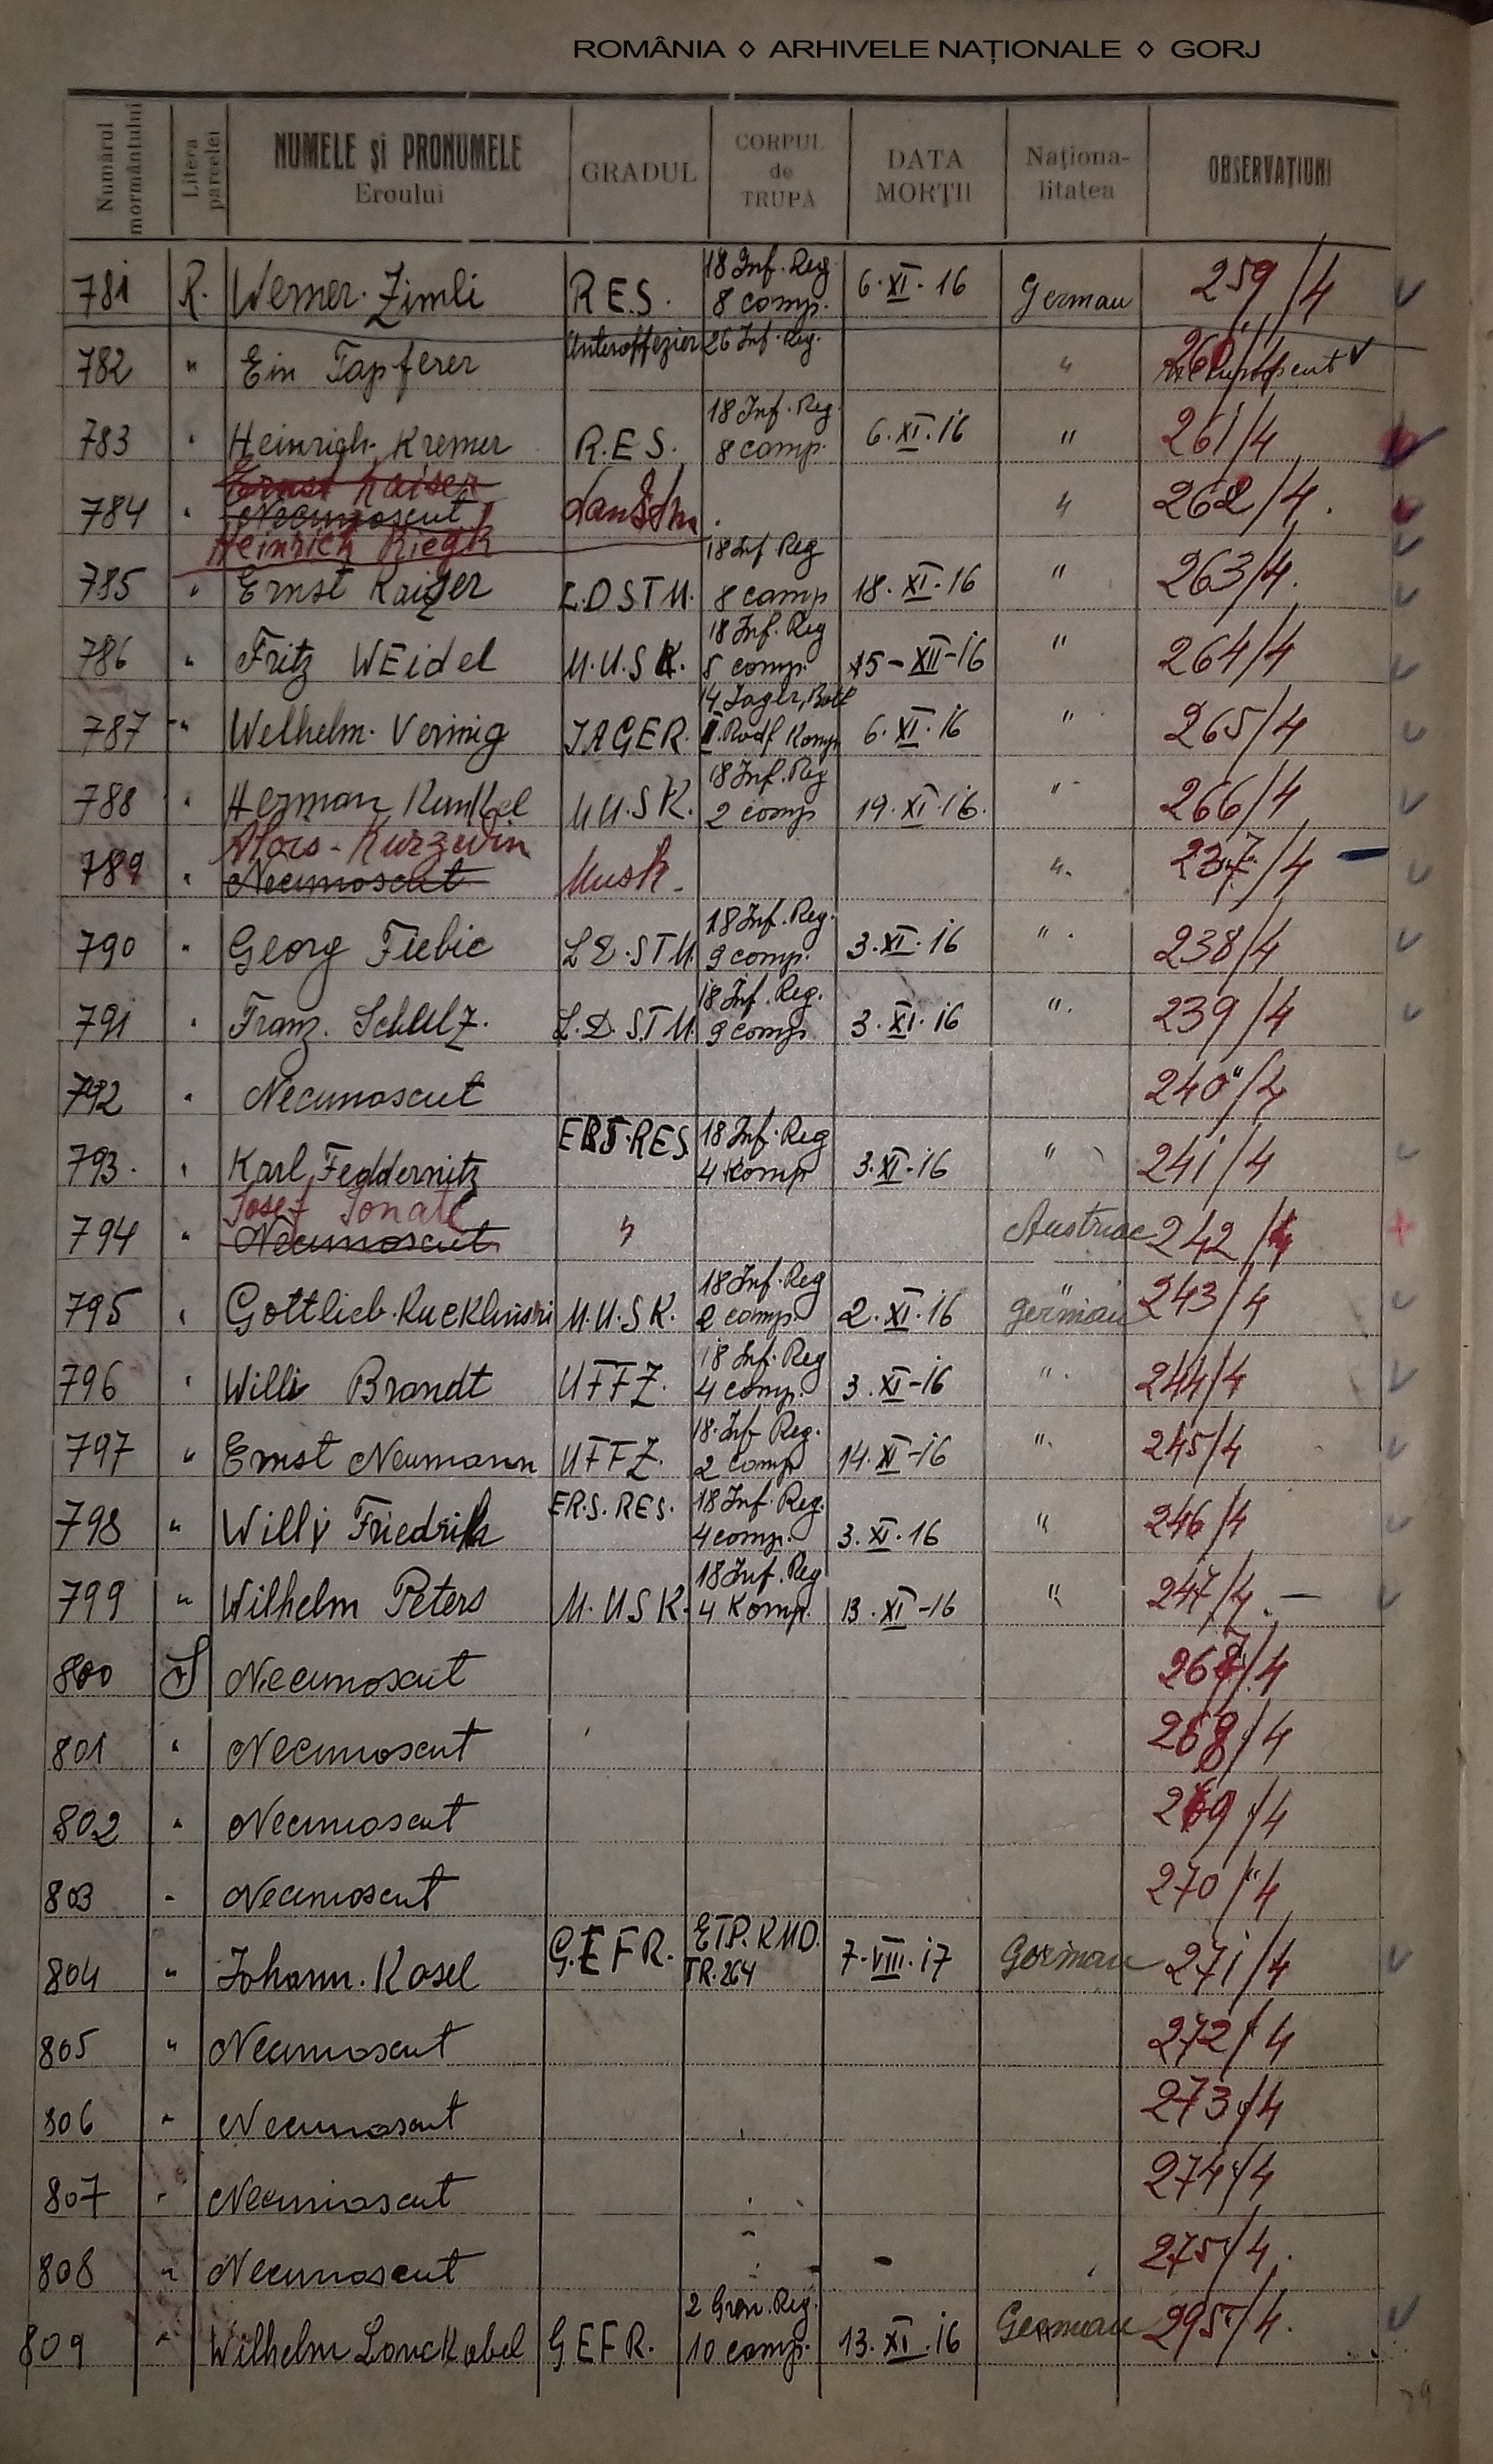 ROMÂNIA ◊ ARHIVELE NAȚIONALE ◊ GORJ
Numărul mormântului Litera parcelei NUMELE și PRONUMELE Eroului GRADUL CORPUL de TRUPĂ DATA MORȚII Naționalitatea OBSERVAȚIUNI
781 R. Werner Zimli R.E.S. 18 Inf. Reg 8 comp. 6.XI.16 German 259/4
782 " Ein Tapferer Unteroffezier 26 Inf. Reg. " 260/4
783 " Heinrich Kremer R.E.S. 18 Inf. Reg. 8 comp. 6.XI.16 " 261/4
Ernst Kaiser
784 " Necunoscut " 262/4.
Heinrich
785 " Ernst Kaiser L.D STM. 18 Inf Reg 8 comp 18.XI.16 " 263/4.
786 " Fritz WEidel M.U.S K. 18 Inf. Reg 5 comp. 15-XII-16 " 264/4
787 " Welhelm. JAGER. 14 Jager, Batl Komp 6.XI.16 " 265/4
788 " Herman Kunkel M U.S K. 18 Inf. Reg 2 comp 19.XI.16. " 266/4
789 " Necunoscut Musk. " 237/4
790 " Georg Fiebic L D.STM. 18 Inf. Reg. 9 comp. 3.XI.16 " 238/4
791 " Franz. Schulz. L.D. S.T M. 18 Inf. Reg. 9 comp 3.XI.16 " 239/4
792 " Necunoscut 240"/4
793. " Karl Feddernitz ERS.RES. 18 Inf. Reg 4 Komp 3.XI.16 " 241/4
Josef
794 " Necunoscut " Austriac 242/4
795 " Gottlieb M.U.S.K. 18 Inf. Reg 2 comp. 2.XI.16 german 243/4
796 " Willi Brandt UFFZ. 18 Inf. Reg 4 comp. 3.XI-16 " 244/4
797 " Ernst Neumann UFFZ. 18.Inf Reg. 2 comp 14.XI-16 " 245/4
798 " Willy Friedrih ER.S. RES. 18 Inf. Reg. 4 comp. 3.XI.16 " 246/4
799 " Wilhelm Peters M.USK. 18 Inf. Reg 4 Komp. 13.XI-16 " 247/4.
800 S Necunoscut 267/4
801 " Necunoscut 268/4
802 " Necunoscut 269/4
803 - Necunoscut 270/4
804 " Johann. Kosel G.EFR. ETP. KMD. TR.264 7.VIII.17 German 271/4
805 " Necunoscut 272/4
806 " Necunoscut 273/4
807 " Necunoscut 274/4
808 " Necunoscut 275/4.
809 " Wilhelm Lonckabel GEFR. 2 Gren. Reg. 10 comp. 13.XI.16 German 295/4.